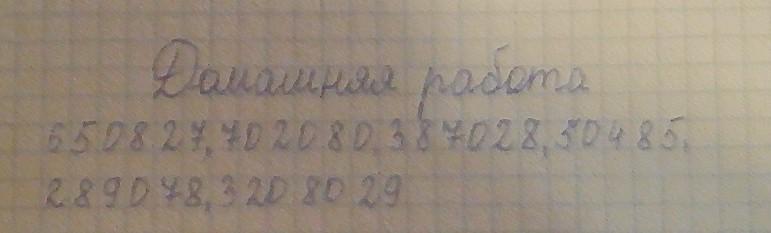 Домашняя работа
650827, 702080, 387028, 50485.
289078, 3208029